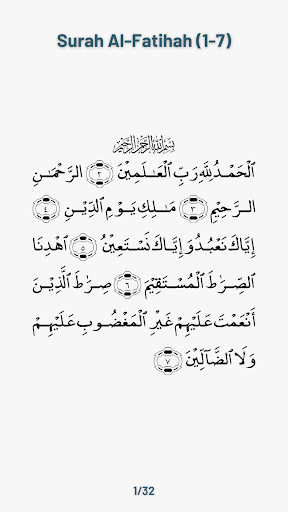 Surah Al-Fatihah (1-7)
بِسْمِ ٱللَّهِ ٱلرَّحْمَـٰنِ ٱلرَّحِيمِ
ٱلْحَمْدُ لِلَّهِ رَبِّ ٱلْعَـٰلَمِينَ ٢ ٱلرَّحْمَـٰنِ
ٱلرَّحِيمِ ٣ مَـٰلِكِ يَوْمِ ٱلدِّينِ ٤
إِيَّاكَ نَعْبُدُ وَإِيَّاكَ نَسْتَعِينُ ٥ ٱهْدِنَا
ٱلصِّرَٰطَ ٱلْمُسْتَقِيمَ ٦ صِرَٰطَ ٱلَّذِينَ
أَنْعَمْتَ عَلَيْهِمْ غَيْرِ ٱلْمَغْضُوبِ عَلَيْهِمْ
وَلَا ٱلضَّآلِّينَ ٧
1/32